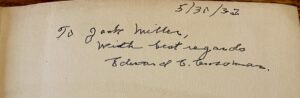 5/31/32
To Jack Miller,
With best regards
Edward E.